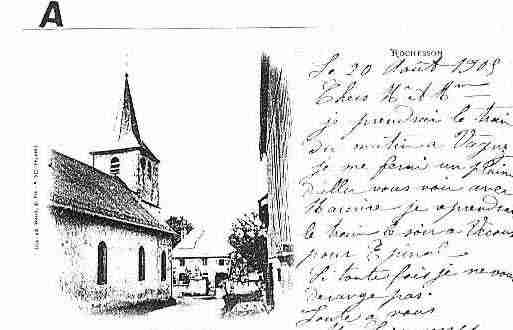 A
ROCHESSON
Le 20 Août 1905
Chers Mr & Mme
je prendrai le train
du matin a Vagney
je me ferai un plaisir
d'aller vous voir avec
je reprendrai
le train à soir a
pour Epinal
Si toute fois je ne vous
derange pas.
Toute a vous